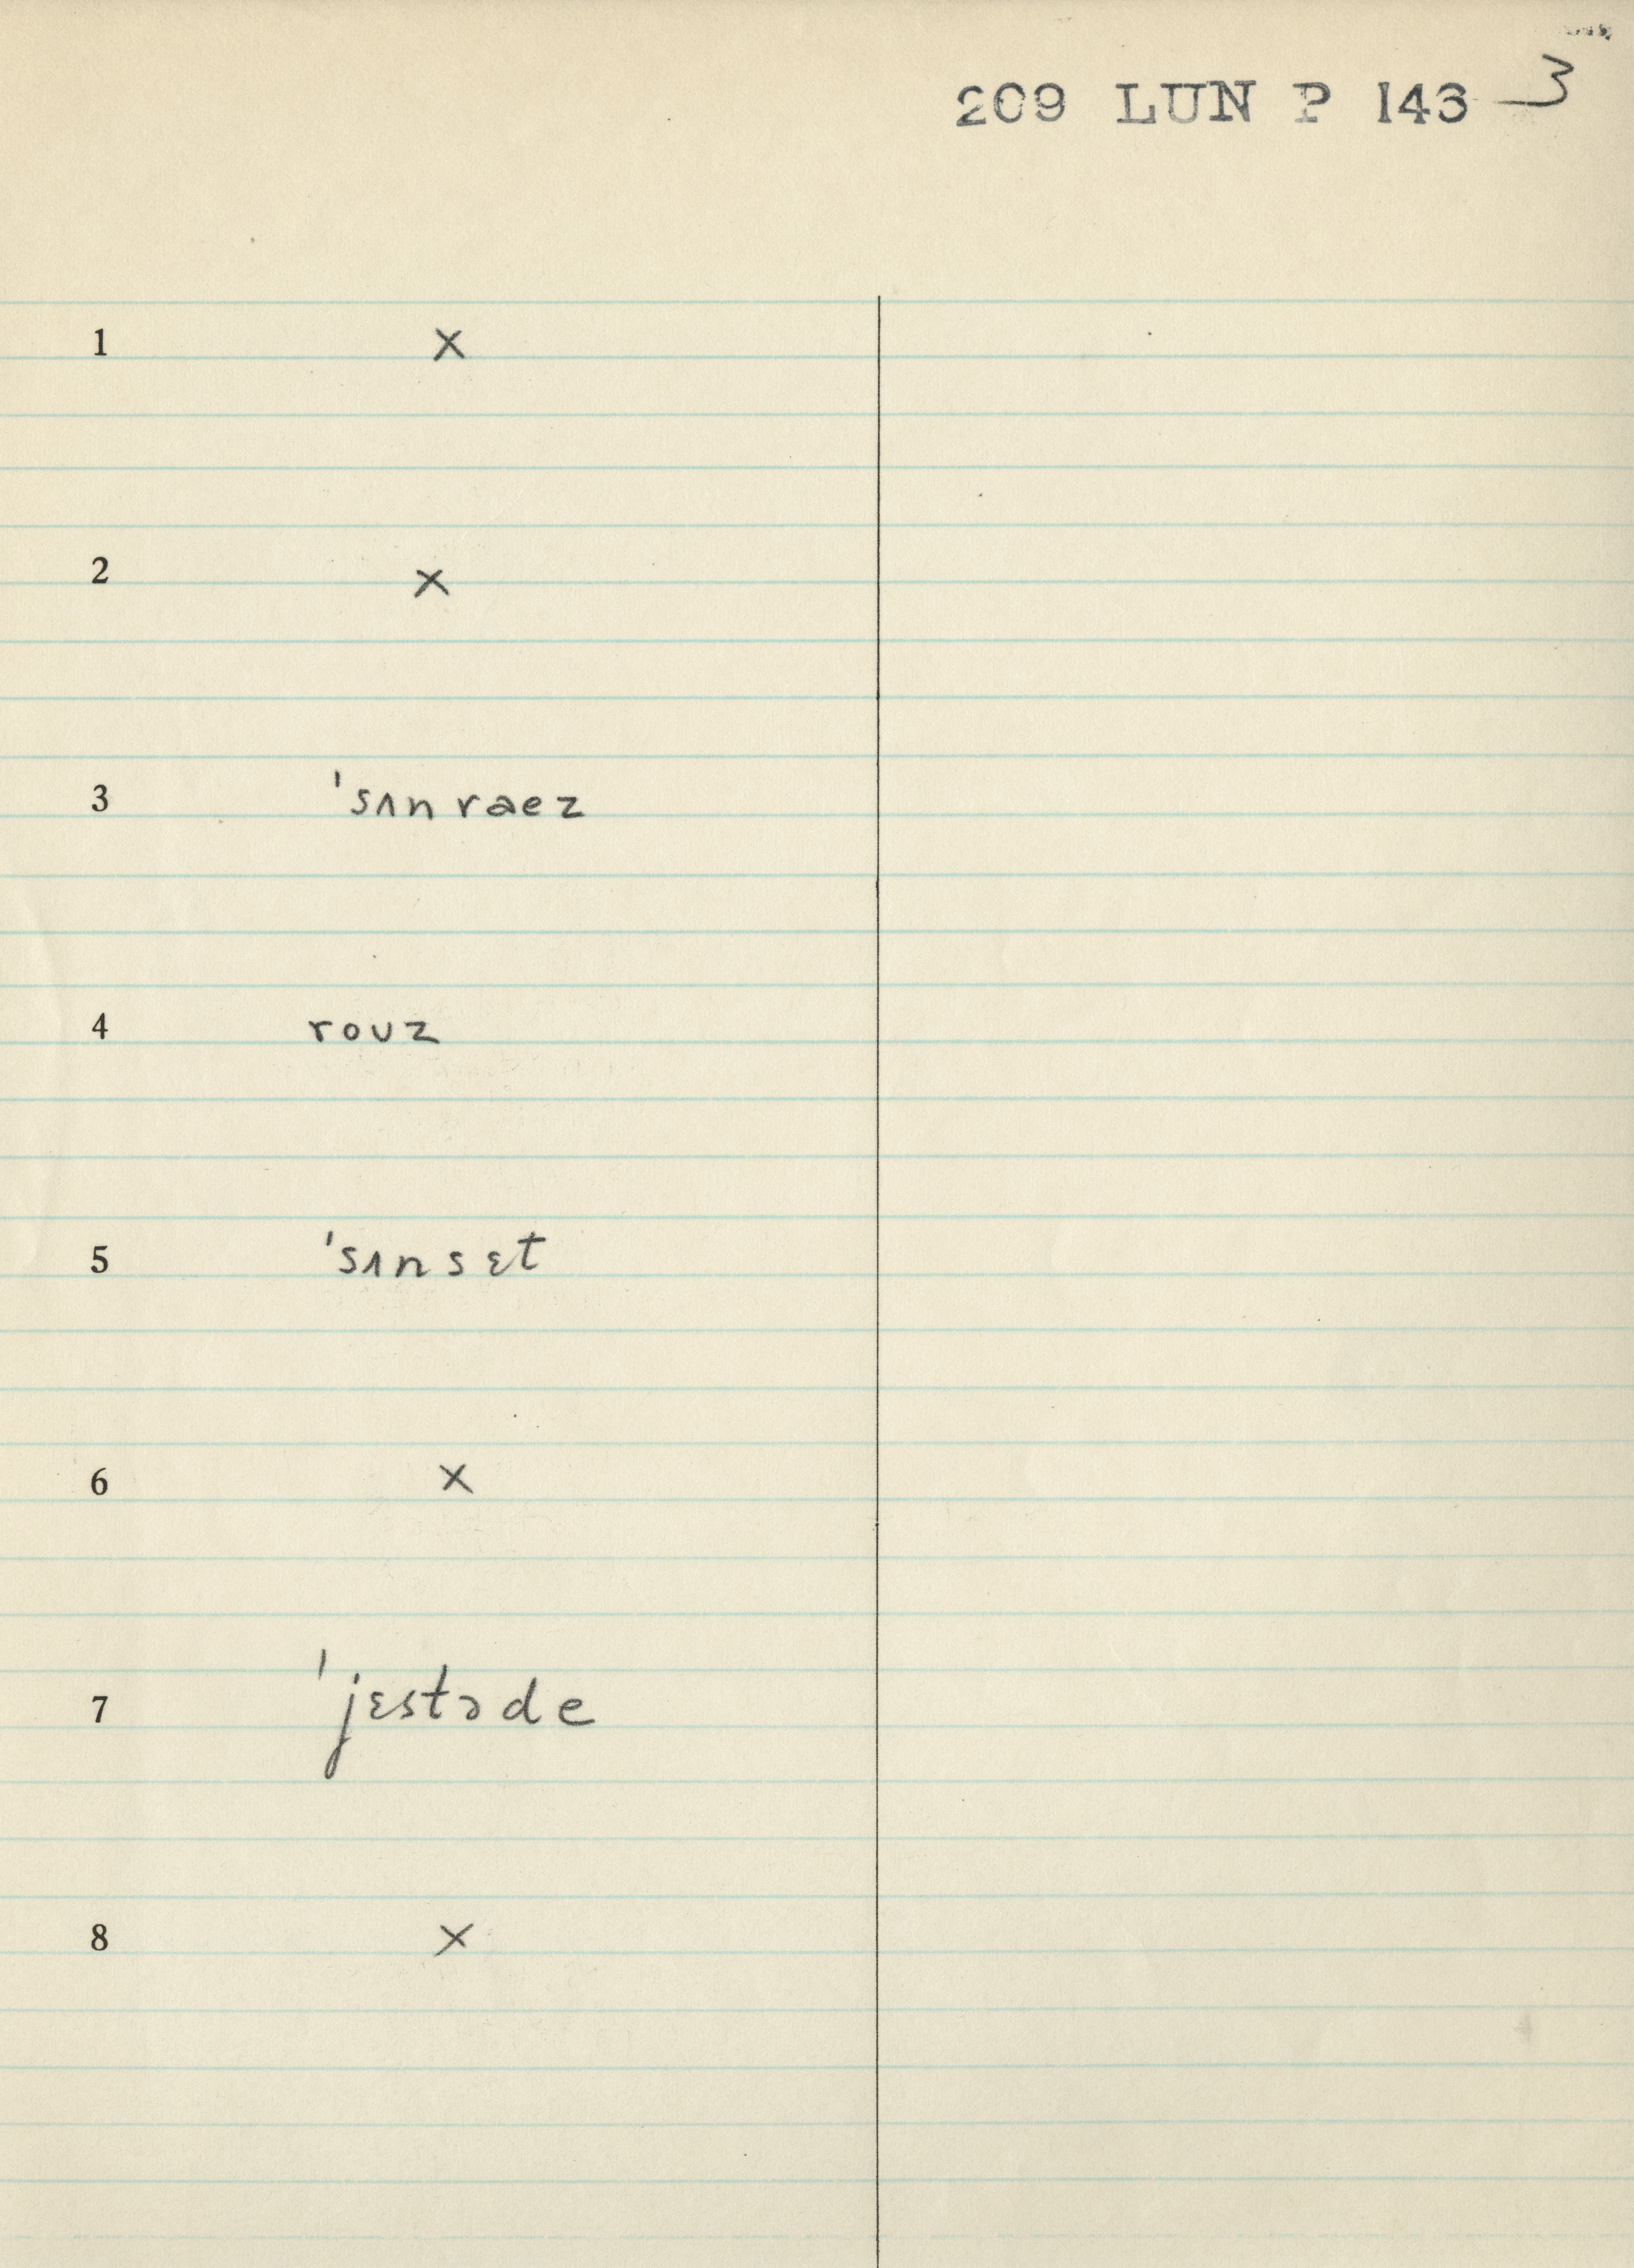 209 LUN P 143 3
1 x
2 x
3 'sʌn raez
4 rouz
5 'sʌnsɛt
6 x
7 'jɛstəde
8 x